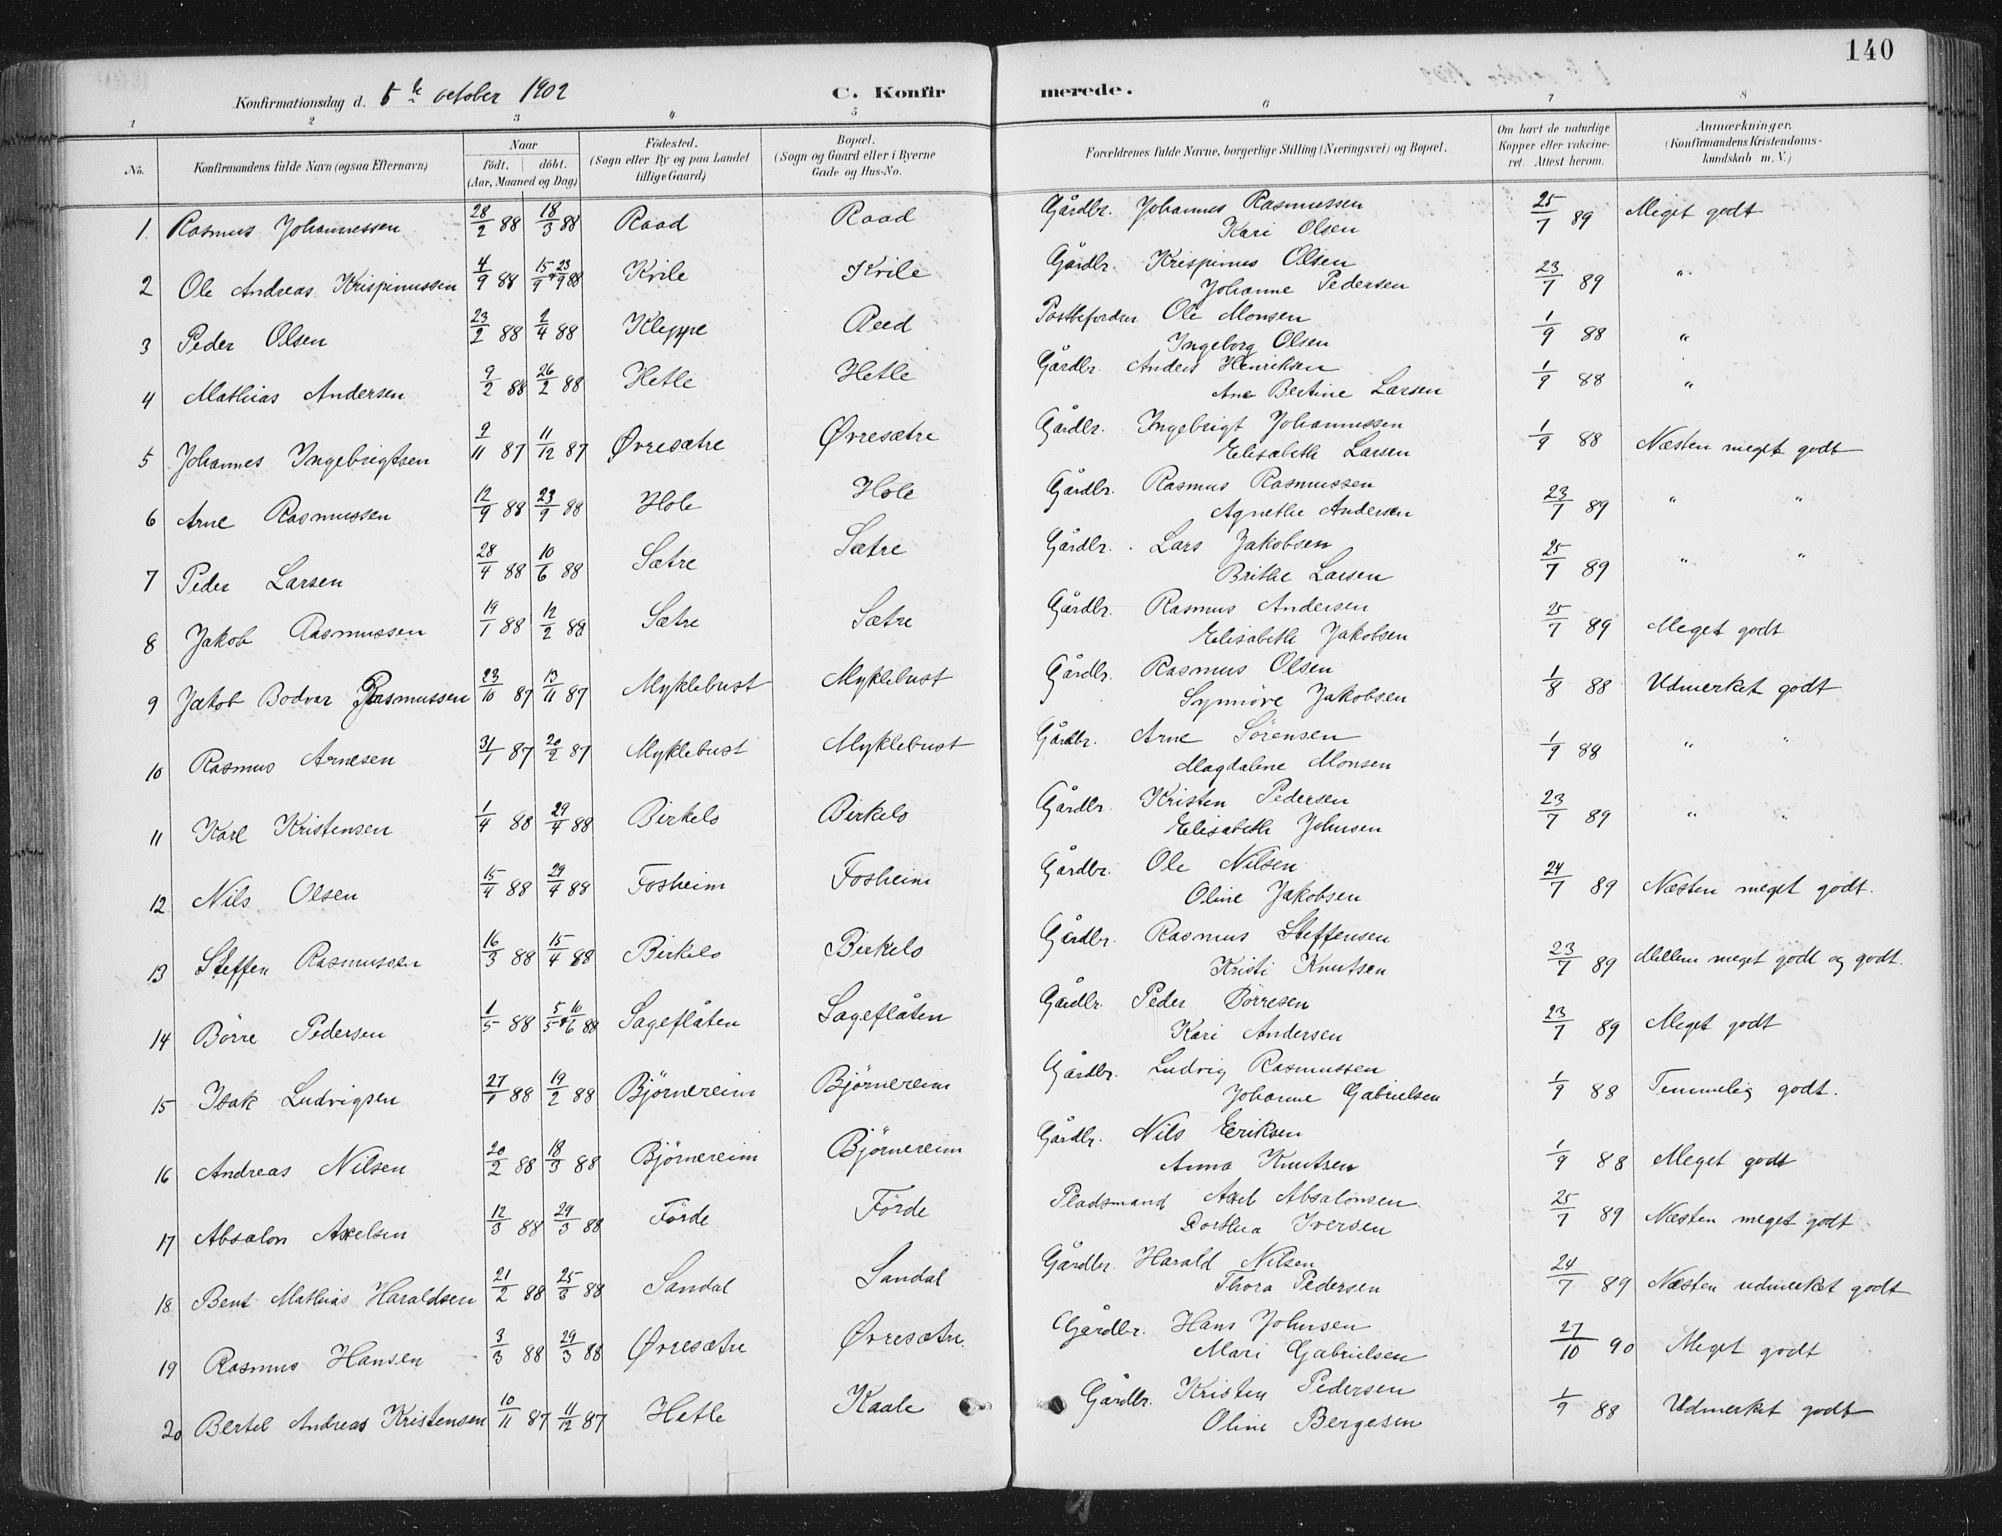 140
Konfirmationsdag d. 5te october 1902 C. Konfirmerede.
1 2 3 4 5 6 7 8
No. Konfirmandens fulde Navn (ogsaa Efternavn) Naar født. døbt. (Aar, Maaned og Dag) Fødested. (Sogn eller By og paa Landet tillige Gaard) Bopæl. (Sogn og Gaard eller i Byerne Gade og Hus-No. Forældrenes fulde Navne, borgerlige Stilling (Næringsvei) og Bopæl. Om havt de naturlige Kopper eller vakcineret. Attest herom. Anmærkninger. (Konfirmandens Kristendomskundskab m. V.)
1. Rasmus Johannessen 28/2 88 18/3 88 Raad Raad Gårdbr. Johannes Rasmussen 25/7 89 Meget godt
Kari Olsen
2 Ole Andreas Krispinussen 4/9 88 15/9 23/9 88 Kvile Kvile Gårdbr. Krispinus Olsen 23/7 89 "
Johanne Pedersen
3 Peder Olsen 23/2 88 2/4 88 Kleppe Reed Postbefordrer Ole Monsen 1/9 88 "
Ingeborg Olsen
4 Mathias Andersen 9/2 88 26/2 88 Hetle Hetle Gårdbr. Anders Henriksen 1/9 88 "
Ane Bertine Larsen
5 Johannes Ingebrigtsen 9/11 87 11/12 87 Øvresætre Øvresætre Gårdbr. Ingebrigt Johannessen 1/9 88 Næsten meget godt
Elisabeth Larsen
6 Arne Rasmussen 12/9 88 23/9 88 Hole Hole Gårdbr. Rasmus Rasmussen 23/7 89 " "
Agnethe Andersen
7 Peder Larsen 28/4 88 10/6 88 Sætre Sætre Gårdbr. Lars Jakobsen 25/7 89 " "
Brithe Larsen
8 Jakob Rasmussen 19/1 88 12/2 88 Sætre Sætre Gårdbr. Rasmus Andersen 25/7 89 Meget godt
Elisabeth Jakobsen
9 Jakob Bodvar Rasmussen 23/10 87 13/11 87 Myklebust Myklebust Gårdbr. Rasmus Olsen 1/8 88 Udmerket godt
Synnöve Jakobsen
10 Rasmus Arnesen 31/1 87 20/2 87 Myklebust Myklebust Gårdbr. Arne Sörensen 1/9 88 " "
Magdalene Monsen
11 Karl Kristensen 1/4 88 29/4 88 Birkelo Birkelo Gårdbr. Kristen Pedersen 23/7 89 " "
Elisabeth Johnsen
12 Nils Olsen 15/4 88 29/4 88 Fosheim Fosheim Gårdbr. Ole Nilsen 24/7 89 Næsten meget godt.
Oline Jakobsen
13 Steffen Rasmussen 16/3 88 15/4 88 Birkelo Birkelo Gårdbr. Rasmus Steffensen 23/7 89 Mellem meget godt og godt.
Kristi Knutsen
14 Börre Pedersen 1/5 88 5/5 10/6 88 Sageflåten Sageflåten Gårdbr. Peder Börresen 23/7 89 Meget godt
Kari Andersen
15 Isak Ludvigsen 27/1 88 19/2 88 Björnereim Björnereim Gårdbr. Ludvig Rasmussen 1/9 88 Temmelig godt.
Johanne Gabrielsen
16 Andreas Nilsen 20/2 88 18/3 88 Björnereim Björnereim Gårdbr. Nils Eriksen 1/9 88 Meget godt
Anna Knutsen
17 Absalon Axelsen 12/3 88 29/3 88 Förde Förde Pladsmand Axel Absalonsen 25/7 89 Næsten meget godt
Dorthea Iversen
18 Bent Mathias Haraldsen 21/2 88 25/3 88 Sandal Sandal Gårdbr. Harald Nilsen 24/7 89 Næsten udmerket godt
Thora Pedersen
19 Rasmus Hansen 3/3 88 29/3 88 Øvresætre Øvresætre. Gårdbr. Hans Johnsen 27/10 90 Meget godt
Mari Gabrielsen
20 Bertel Andreas Kristensen 10/11 87 11/12 87 Hetle Kaale Gårdbr. Kristen Pedersen 1/9 88 Udmerket godt
Oline Bergesen